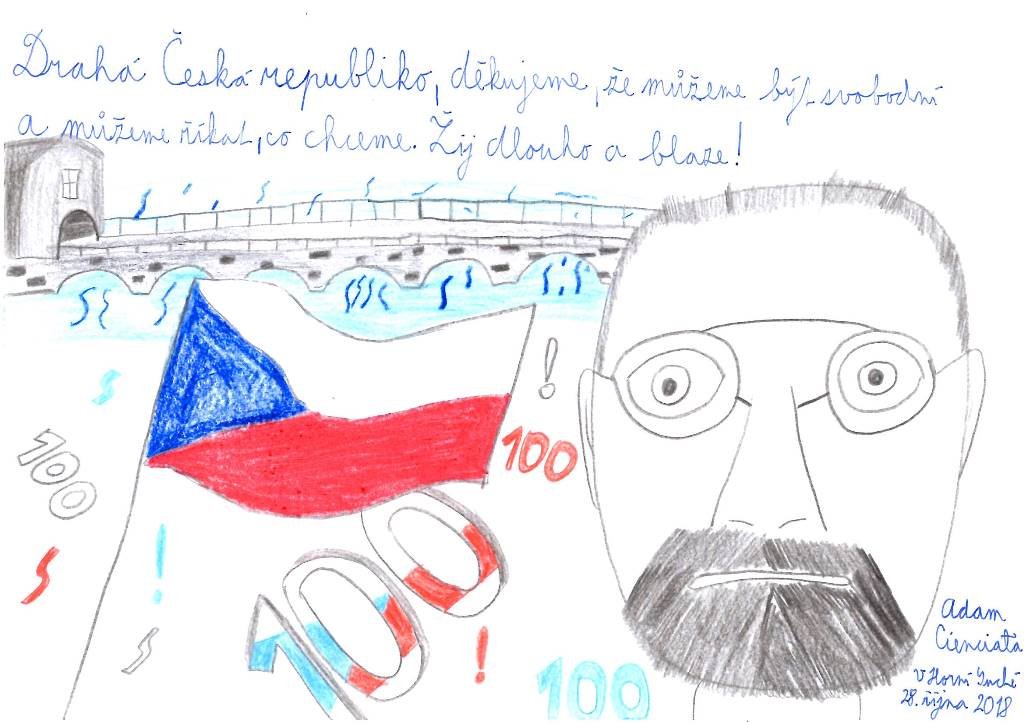 Drahá Česká republiko, děkujeme, že můžeme být svobodní
a můžeme říkat, co chceme. Žij dlouho a blaze!
!
100
100
!
100
!
100
Adam
Cienciała
V Horní Suché
28. října 2018